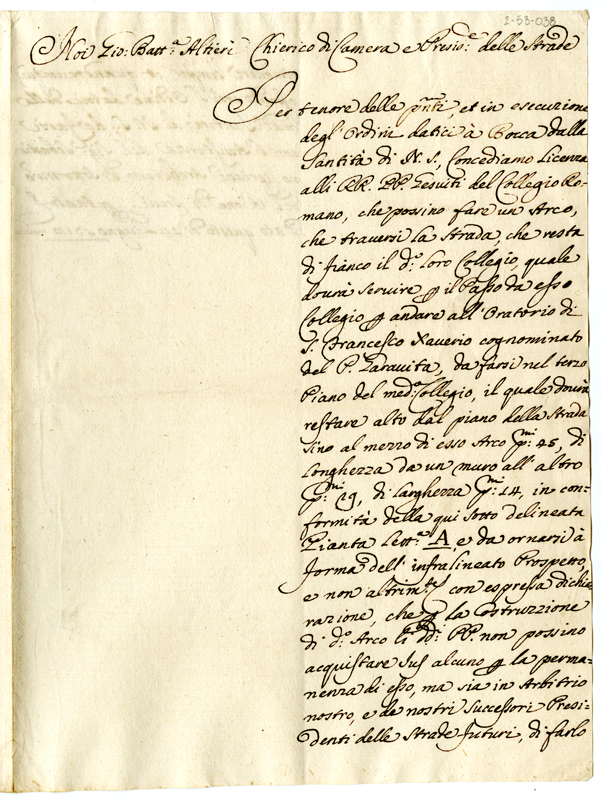 2-53-038
Noi Gio: Batt.ª Altieri Chierico di Camera e Presid.e delle Strade
Per tenore delle p̃nti, et in esecuzione
degl'Ordini datici à Bocca dalla
Santità di N. S., Concediamo Licenza
alli RR. PP. Gesuiti del Collegio Ro-
mano, che possino fare un Arco,
che traversi la Strada, che resta
di fianco il d.º loro Collegio, quale
dovrà servire p il Passo da esso
Collegio p andare all'Oratorio di
S. Francesco Xaverio cognominato
del P. Garavita, da farsi nel terzo
Piano del med.º Collegio, il quale dovrà
restare alto dal piano della Strada
sino al mezzo di esso Arco p:mi 45, di
Longhezza da un muro all'altro
p:mi 19, di Larghezza p:mi 14, in con=
formità della qui sotto delineata
Pianta Lett.ª A, e da ornarsi à
forma dell'infralineato Prospetto,
e non altrim.te con espressa dichia=
razione, che p la Costruzzione
di d.º Arco li dd: PP. non possino
acquistare Jus alcuno p la perma=
nenza di esso, ma sia in Arbitrio
nostro, e de nostri Successori Presi=
denti delle Strade futuri, di farlo